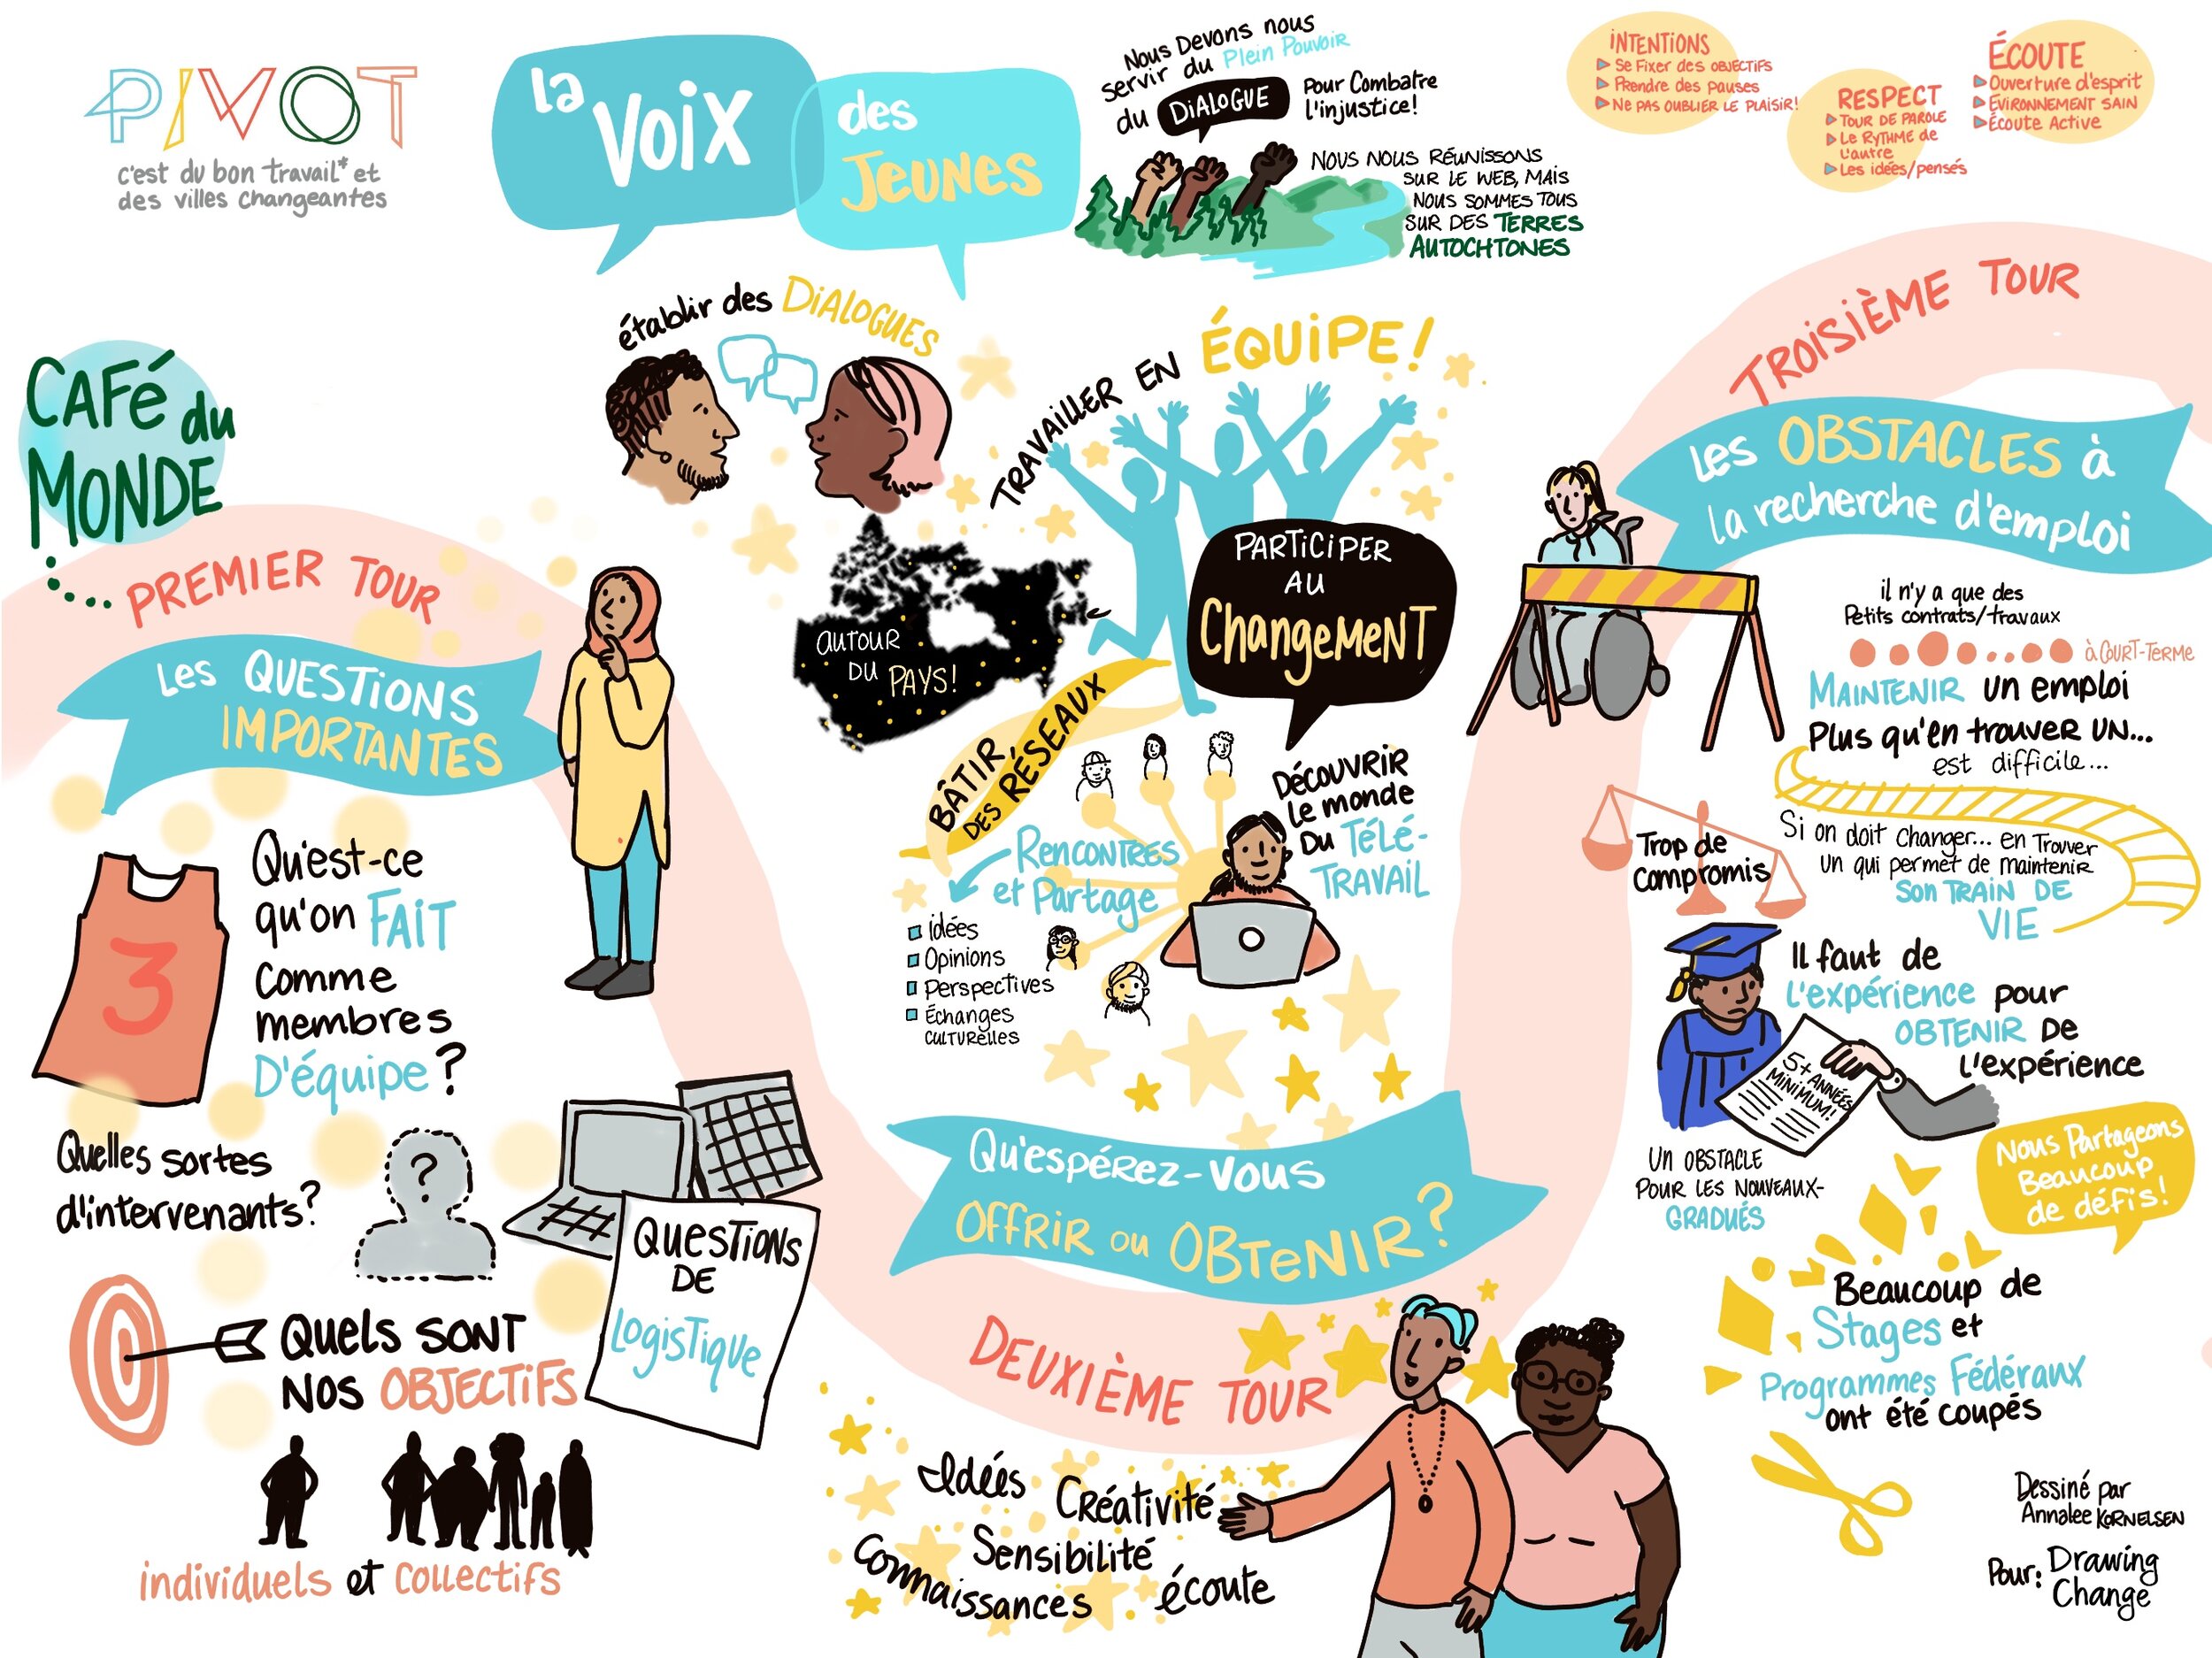 PIVOT
c'est du bon travail* et
des villes changeantes
la
VOIX
des
JEUNES
Nous Devons nous
servir du Plein Pouvoir
du DIALOGUE
Pour Combatre
l'injustice!
NOUS NOUS RÉUNISSONS
SUR LE WEB, MAIS
NOUS SOMMES TOUS
SUR DES TERRES
AUTOCHTONES
INTENTIONS
Se Fixer des OBJECTIFS
Prendre des pauses
Ne PAS OUBLIER LE PLAISIR!
RESPECT
TOUR DE PAROLE
Le RYTHME de
L'autre
Les idées/pensés
ÉCOUTE
Ouverture d'esprit
ÉVIRONNEMENT SAIN
Écoute Active
CAFé du
MONDE
PREMIER TOUR
Les QUESTIONS
IMPORTANTES
Qu'est-ce
qu'on FAIT
Comme
membres
D'équipe?
Quelles sortes
d'intervenants?
?
QUESTIONS
DE
LogisTique
QUELS SONT
NOS OBJECTIFS
individuels et Collectifs
établir des DIALOGUES
TRAVAILLER EN ÉQUIPE!
AUTOUR
DU PAYS!
PARTICIPER
AU
ChangeMeNT
BÂTIR
DES RÉSEAUX
Découvrir
Le monde
Du TéLé-
TRAVAIL
Rencontres
et Partage
Idées
Opinions
Perspectives
Échanges
CULTURELLES
Qu'espérez-Vous
OFFRIR ou OBTENIR?
DEUXIÈME TOUR
Idées
Créativité
Sensibilité
Connaissances
écoute
TROISIÈME TOUR
Les OBSTACLES à
la recherche d'emploi
il n'y a que des
Petits contrats/travaux
à COURT-TERME
MAINTENIR un emploi
Plus qu'en trouver UN...
est difficile...
Trop de
Compromis
Si on doit Changer... en Trouver
Un qui permet de maintenir
Son TRAIN DE
VIE
Il faut de
L'expérience pour
OBTENIR De
L'expérience
5+ ANNÉES
MINIMUM!
UN OBSTACLE
POUR LES NOUVEAUX-
GRADUÉS
Nous Partageons
Beaucoup
de défis!
Beaucoup de
Stages et
Programmes Fédéraux
ont été coupés
Dessiné par
Annalee KORNELSEN
Pour: Drawing
Change
3